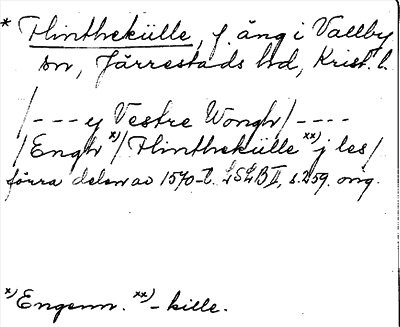 * Flinthekülle, f. äng i Vallby
sn, Järrestads hd, Krist. l.
/---- y Vestre Wongh/----
/Engh x)/ Flinthekülle xx) j les/
förra delen av 1570-t. LSLB II, s. 259. orig.
x) Engenn. xx) -kille.